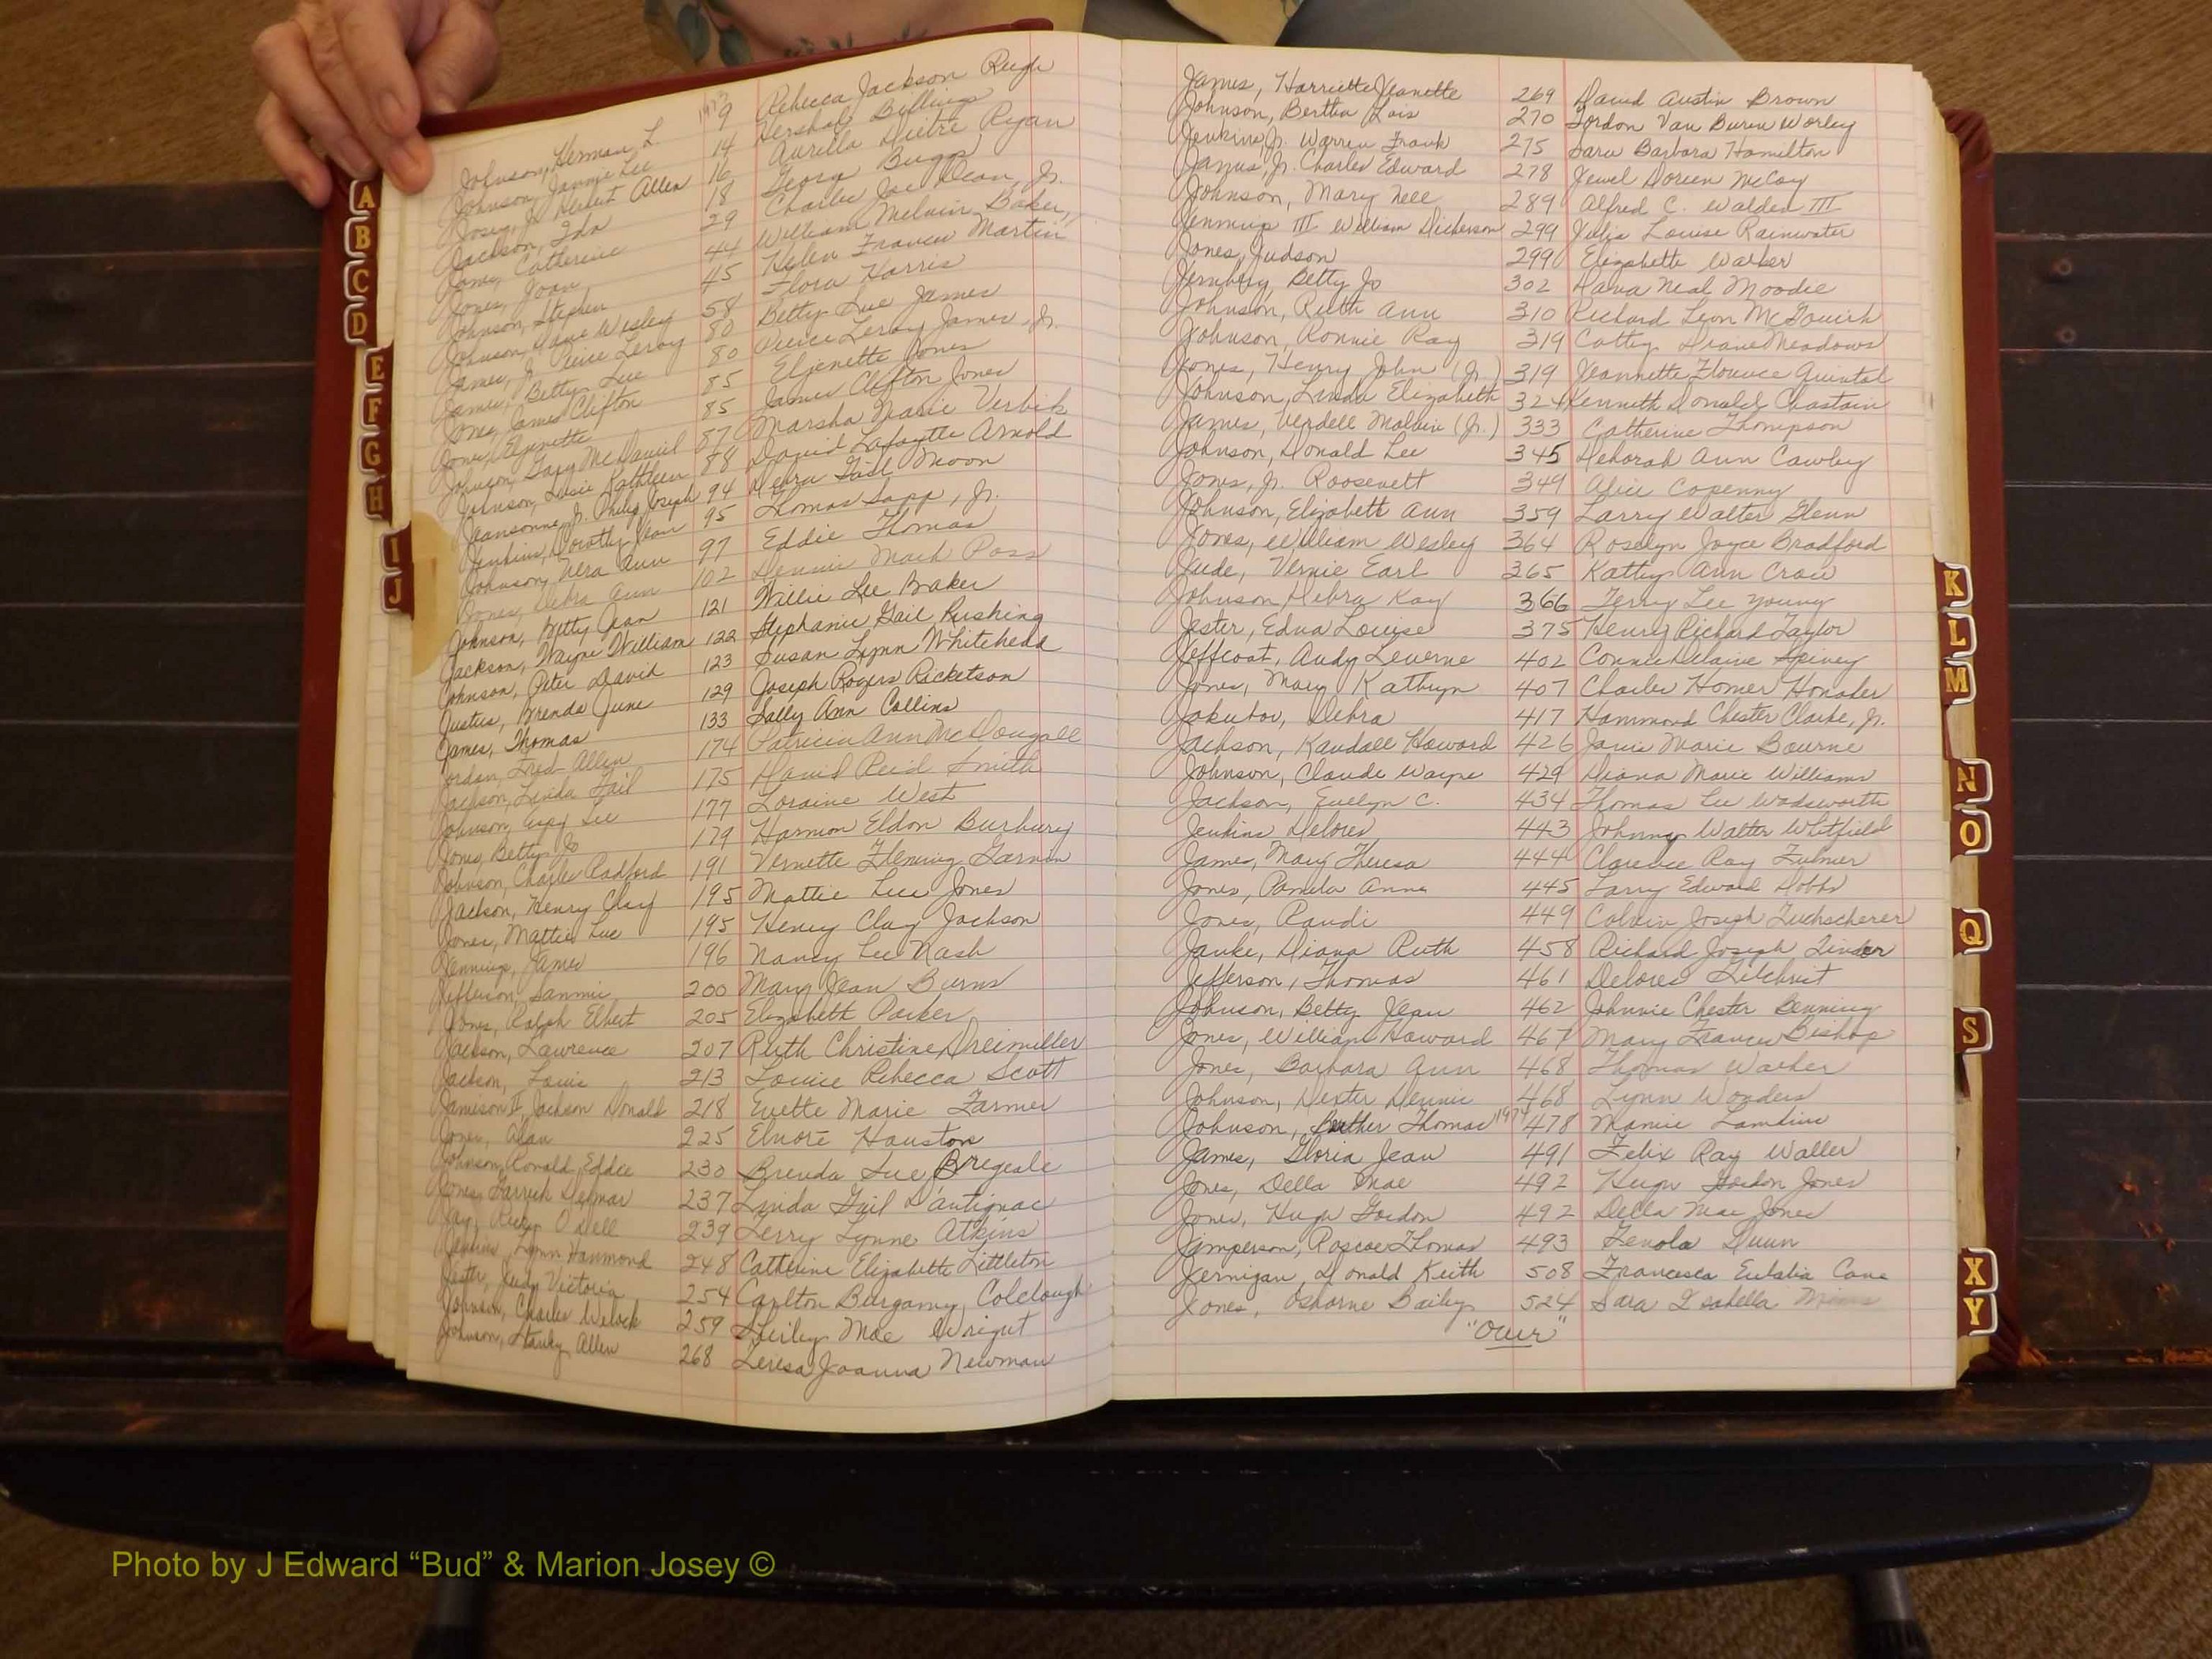 1973
Johnson, Herman L. 9 Rebecca Jackson
Johnson, Jannie Lee 14 Hershal Billings
Josey, Jr. Delbert Allen 16 Aurilla Dietre Ryan
Jackson, Ida 18 Georg Buggs
Jones, Catherine 29 Charlie Joe Dean, Jr.
Jones, Joan 44 William Melvin Baker,
Johnson, Stephen 45 Helen Frances Martin
Johnson, Wesley 58 Flora Harris
James, Jr. Peirce Leroy 80 Betty Sue James
James, Betty Sue 80 Peirce Leroy James, Jr.
Jones, James Clifton 85 Elzenette Jones
Jones, Elzenette 85 James Clifton Jones
Johnson, Gary McDaniel 87 Marsha Marie Verbik
Johnson, Susie Kathleen 88 David Lafaytte Arnold
Jeansonne, Jr. Philip Joseph 94 Debra Gail Moon
Jenkins, Dorothy Jean 95 Thomas Sapp, Jr.
Johnson, Vera Ann 97 Eddie Thomas
Jones, Debra Ann 102 Dennis Mack Poss
Johnson, Betty Jean 121 Willie Lee Baker
Jackson, Wayne William 122 Stephanie Gail Rushing
Johnson, Peter David 123 Susan Lynn Whitehead
Justus, Brenda June 129 Joseph Rogers Ricketson
James, Thomas 133 Sally Ann Collins
Jordan, Fred Allen 174 Patricia Ann McDougall
Jackson, Linda Gail 175 David Reid Smith
Johnson, Lee 177 Loraine West
Jones, Betty Jo 179 Harmon Eldon Burbury
Johnson, Charles Radford 191 Vernette Fleming Garnon
Jackson, Henry Clay 195 Mattie Lue Jones
Jones, Mattie Lue 195 Henry Clay Jackson
Jennings, James 196 Nancy Lee Nash
Jefferson, Sammie 200 Mary Jean Burns
Jones, Ralph Elbert 205 Elizabeth Parker
Jackson, Lawrence 207 Ruth Christine Dreimiller
Jackson, Louis 213 Louise Rebecca Scott
Jamison II, Jackson Donald 218 Evette Marie Farmer
Jones, Alan 225 Elnore Houston
Johnson, Ronald Eddie 230 Brenda Sue Bregeale
Jones, Garrick Delmar 237 Linda Gail D'antignac
Jay, Ricky O'Dell 239 Terry Lynne Atkins
Jenkins, Lynn Hammond 248 Catherine Elizabeth Littleton
Jester, Judy Victoria 254 Carlton Burgamy Colclough
Johnson, Charles Welock 259 Shirley Mae Wright
Johnson, Stanley Allen 268 Teresa Joanna Newman
James, Harriette Jeanette 269 David Austin Brown
Johnson, Bertha Lois 270 Gordon Van Buren Worley
Jenkins, Jr. Warren Frank 275 Sara Barbara Hamilton
James, Jr. Charles Edward 278 Jewel Doreen McCoy
Johnson, Mary Nell 289 Alfred C. Walden III
Jennings III William Dickerson 299 Julia Louise Rainwater
Jones, Judson 299 Elizabeth Walker
Jernberg, Betty Jo 302 Dana Neal Moodie
Johnson, Ruth Ann 310 Richard Leon McGouirk
Johnson, Ronnie Ray 319 Cathy Diane Meadows
Jones, Henry John (Jr.) 319 Jeannette Florence Quintal
Johnson, Linda Elizabeth 324 Kenneth Donald Chastain
James, Verdell Malvin (Jr.) 333 Catherine Thompson
Johnson, Donald Lee 345 Deborah Ann Cawley
Jones, Jr. Roosevelt 349 Alice Copenny
Johnson, Elizabeth Ann 359 Larry Walter Glenn
Jones, William Wesley 364 Roselyn Joyce Bradford
Jude, Vernie Earl 365 Kathy Ann Crow
Johnson, Debra Kay 366 Terry Lee Young
Jester, Edna Louise 375 Henry Richard Taylor
Jeffcoat, Audy Leverne 402 Connie Elaine Spivey
Jones, Mary Kathryn 407 Charles Homer Honaker
Jakubov, Debra 417 Hammond Chester Clarke, Jr.
Jackson, Randall Howard 426 Janis Marie Bourne
Johnson, Claude Wayne 429 Diana Marie Williams
Jackson, Evelyn C. 434 Thomas Lee Wadsworth
Jenkins, Delores 443 Johnny Walter Whitfield
James, Mary Theresa 444 Clarence Ray Fulmer
Jones, Pamela Anne 445 Larry Edward Hobbs
Jones, Randi 449 Calvin Joseph Tuchscherer
Janke, Diana Ruth 458 Richard Joseph Linder
Jefferson, Thomas 461 Delores Gilchrist
Johnson, Betty Jean 462 Johnnie Chester Benning
Jones, William Howard 467 Mary Frances Bishop
Jones, Barbara Ann 468 Thomas Walker
Johnson, Dexter Dennis 468 Lynn Wonders
Johnson, Thomas 1974 478 Mamie Lambins
James, Gloria Jean 491 Felix Ray Waller
Jones, Della Mae 492 Hugh Gordon Jones
Jones, Hugh Gordon 492 Della Mae Jones
Jimperson, Roscoe Thomas 493 Fenola Dunn
Jernigan, Donald Keith 508 Francesca Eulalia Cone
Jones, Osborne Bailey 524 Sara Isabella Mims
"Over"
A
B
C
D
E
F
G
H
I
J
K
L
M
N
O
Q
S
X
Y
Photo by J Edward “Bud” & Marion Josey ©